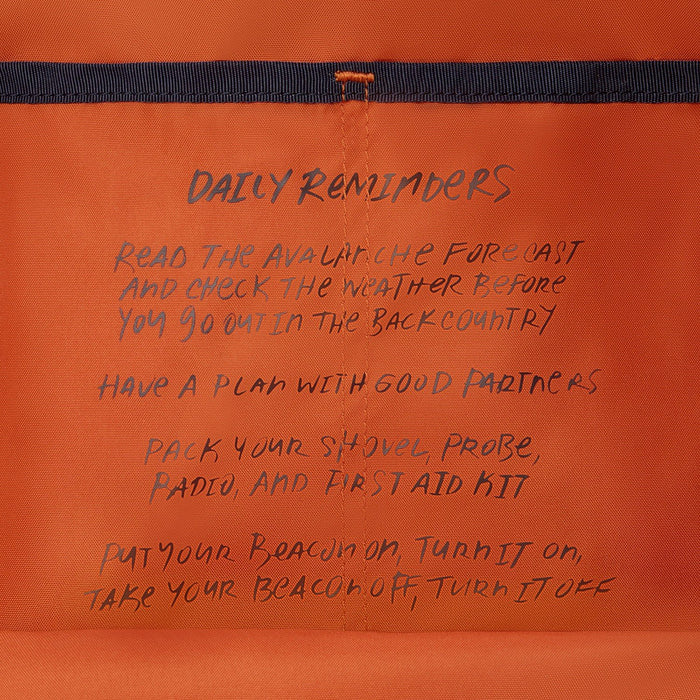 DAILY REMINDERS
READ THE AVALANCHE FORECAST
AND CHECK THE WEATHER BEFORE
YOU GO OUT IN THE BACKCOUNTRY
HAVE A PLAN WITH GOOD PARTNERS
PACK YOUR SHOVEL, PROBE,
RADIO, AND FIRST AID KIT
PUT YOUR BEACON ON, TURN IT ON,
TAKE YOUR BEACON OFF, TURN IT OFF